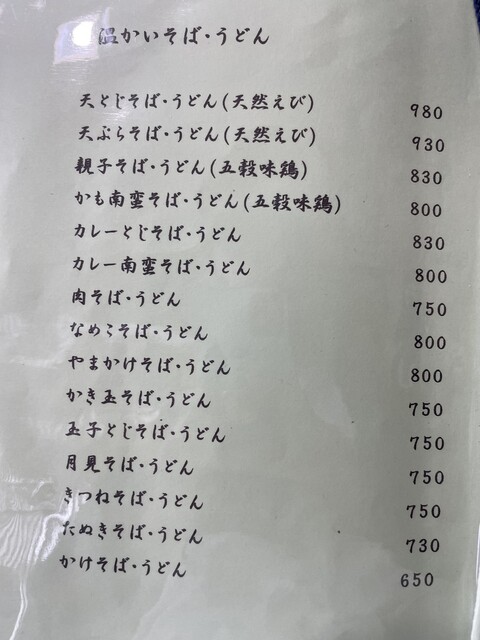 温かいそば・うどん
天とじそば・うどん(天然えび) 980
天ぷらそば・うどん(天然えび) 930
親子そば・うどん(五穀味鶏) 830
かも南蛮そば・うどん(五穀味鶏) 800
カレーとじそば・うどん 830
カレー南蛮そば・うどん 800
肉そば・うどん 750
なめこそば・うどん 800
やまかけそば・うどん 800
かき玉そば・うどん 750
玉子とじそば・うどん 750
月見そば・うどん 750
きつねそば・うどん 750
たぬきそば・うどん 730
かけそば・うどん 650